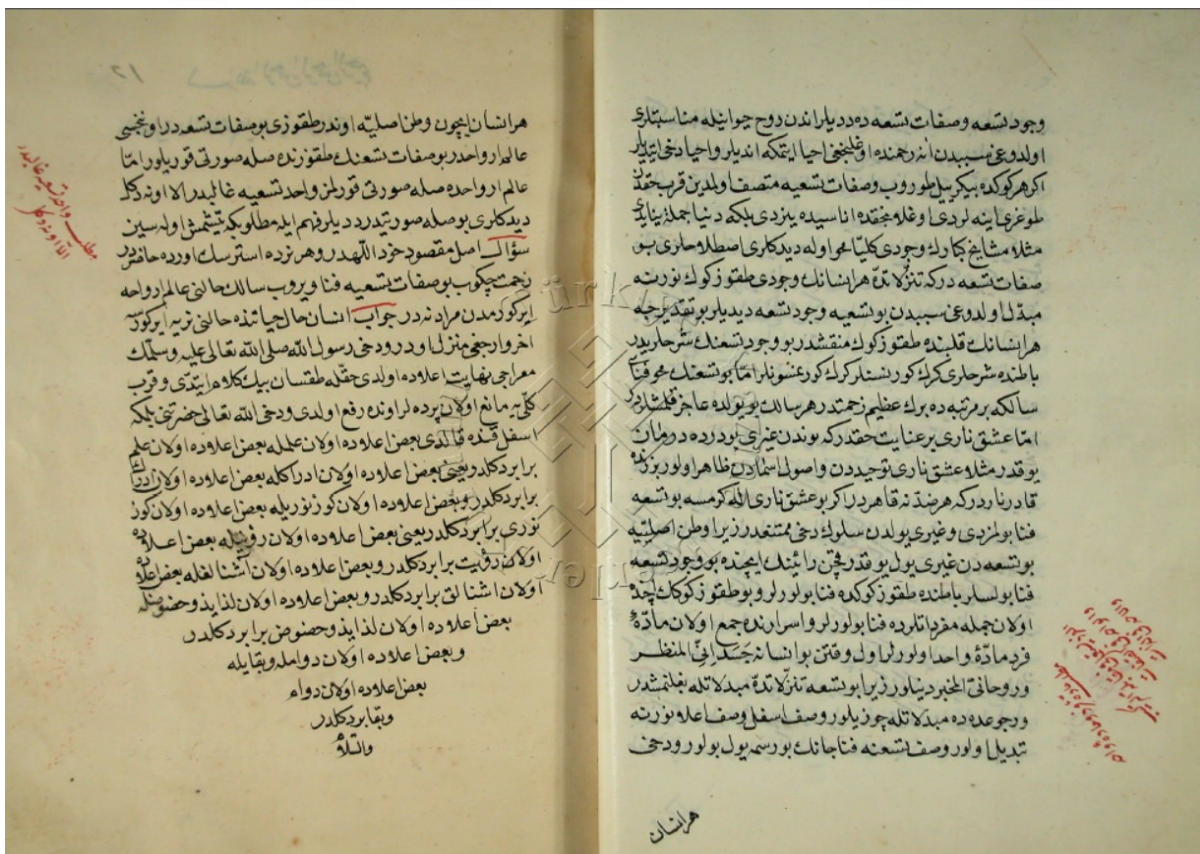 وجود تسعه وصفات تسعه ده ديديلر اندن روح حيوانيله مناسبتلرى
اولدوغى سببدن انه رحمنده اوغلنجغى احيا ايتمكه انديلر واحيا دخى ايتديلر
اكر هر كوكده بيك ييل طوروب وصفات تسعيه متصف اولدين قرب حقدن
طوغرى اينه لردى اوغلانجقده اناسيده يتزدى بلكه دنيا جمله
مثلا مشايخ كبارك وجودى كليا محو اوله ديدكلرى اصطلاحلرى بو
صفات تسعه در كه تنزلاتده هر انسانك وجودى طقوز كوك نورنه
مبدل اولدوغى سببدن بو تسعيه وجود تسعه ديديلر بو تقديرجه
هر انسانك قلبنده طقوز كوك منقشدر بو وجود تسعنك شرحلريدر
باطنده شرحلرى كرك كورنسنلر كرك كورنمسونلر اما بو تسعنك محو فناسى
سالكه بر مرتبه ده برك عظيم زحمتدر هر سالك بو يولده عاجز قلمشلردر
اما عشق نارى بر عنايت حقدر كه بوندن غيرى بو درده درمان
يوقدر مثلا عشق نارى توحيددن واصول اسمادن ظاهر اولور بزنده
قادر ناردر كه هر ضدنه قاهردر اكر بو عشق نارى اله كرمسه بو تسعه
فنا بولمزدى وغيرى يولدن سلوك دخى ممتنعدر زيرا وطن اصليه
بو تسعه دن غيرى يول يوقدر قچن رائينك ايچنده بو وجود تسعه
فنا بولسلر باطنده طقوز كوكده فنا بولورلر وبو طقوز كوكك ايچنده
اولان جمله مفرداتلرده فنا بولورلر واسرارنده جمع اولان مادۀ
فرد مادۀ واحد اولورلر اول وقتن بو انسانه جسدانى المنظر
وروحانى المخبر دينلور زيرا بو تسعه تنزلاتده مبدلاتله بغلنمشدر
ورجوعده ده مبدلاتله چوزيلور وصف اسفل وصف اعلا نورنه
تبديل اولور وصف تسعنه فنا جانك بو رسمه يول بولور ودخى
هر انسان
هر انسان ايچون وطن اصليه اوندر طقوزى بو صفات تسعه در اوننجسى
عالم ارواحدر بو صفات تسعنك طقوزنده صله صورتى قوريلور اما
عالم ارواحده صله صورتى قورلمز واحد تسعيه غالبدر الا اونه دكل
ديدكلرى بو صله صورتيدر ديديلر فهم ايله مطلوبكه يتيشمش اوله سين
سؤال اصل مقصود خود اللهدر وهر نرده استرسك اورده حاضردر
زحمت چكوب بو صفات تسعيه فنا ويروب سالك حالنى عالم ارواحه
ايركورمدن مراد نه در جواب انسان حال حياتنده حالنى نريه ايركورسه
اخر وارجغى منزل اودر ودخى رسول الله صلى الله تعالى عليه وسلمك
معراجى نهايت اعلاده اولدى حقله طقسان بيك كلام ايتدى وقرب
كليه مانع اولان پرده لر اونده رفع اولدى ودخى الله تعالى حضرتنى بلكه
اسفل قنده قالدى بعض اعلاده اولان علمله بعض اعلاده اولان علم
برابر دكلدر يعنى بعض اعلاده اولان ادراكله بعض اعلاده اولان ادراك
برابر دكلدر وبعض اعلاده اولان كوز نوريله بعض اعلاده اولان كوز
نورى برابر دكلدر يعنى بعض اعلاده اولان رؤيتله بعض اعلاده
اولان رؤيت برابر دكلدر وبعض اعلاده اولان آشنالغله بعض اعلاده
اولان اشنالق برابر دكلدر وبعض اعلاده اولان لذايذ وحضوضله
بعض اعلاده اولان لذايذ وحضوض برابر دكلدر
وبعض اعلاده اولان دوامله وبقايله
بعض اعلاده اولان دوام
وبقا برابر دكلدر
والسلام
مطلب واحد تسعيه غالبدر
الا اونه دكل